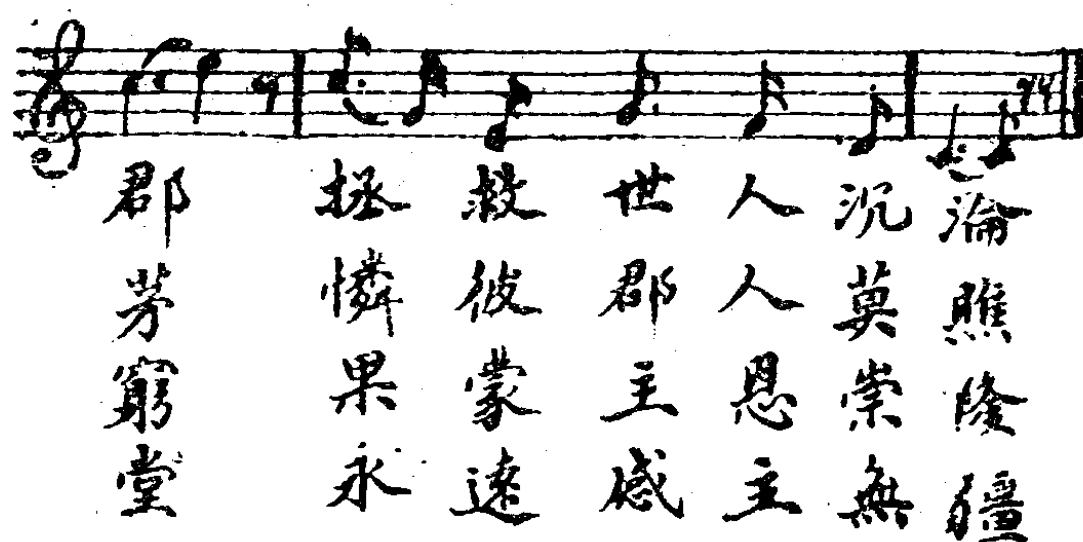 郡拯救世人沉淪
芳憐彼郡人莫瞧
窮果蒙主恩崇隆
堂永遠感主無疆